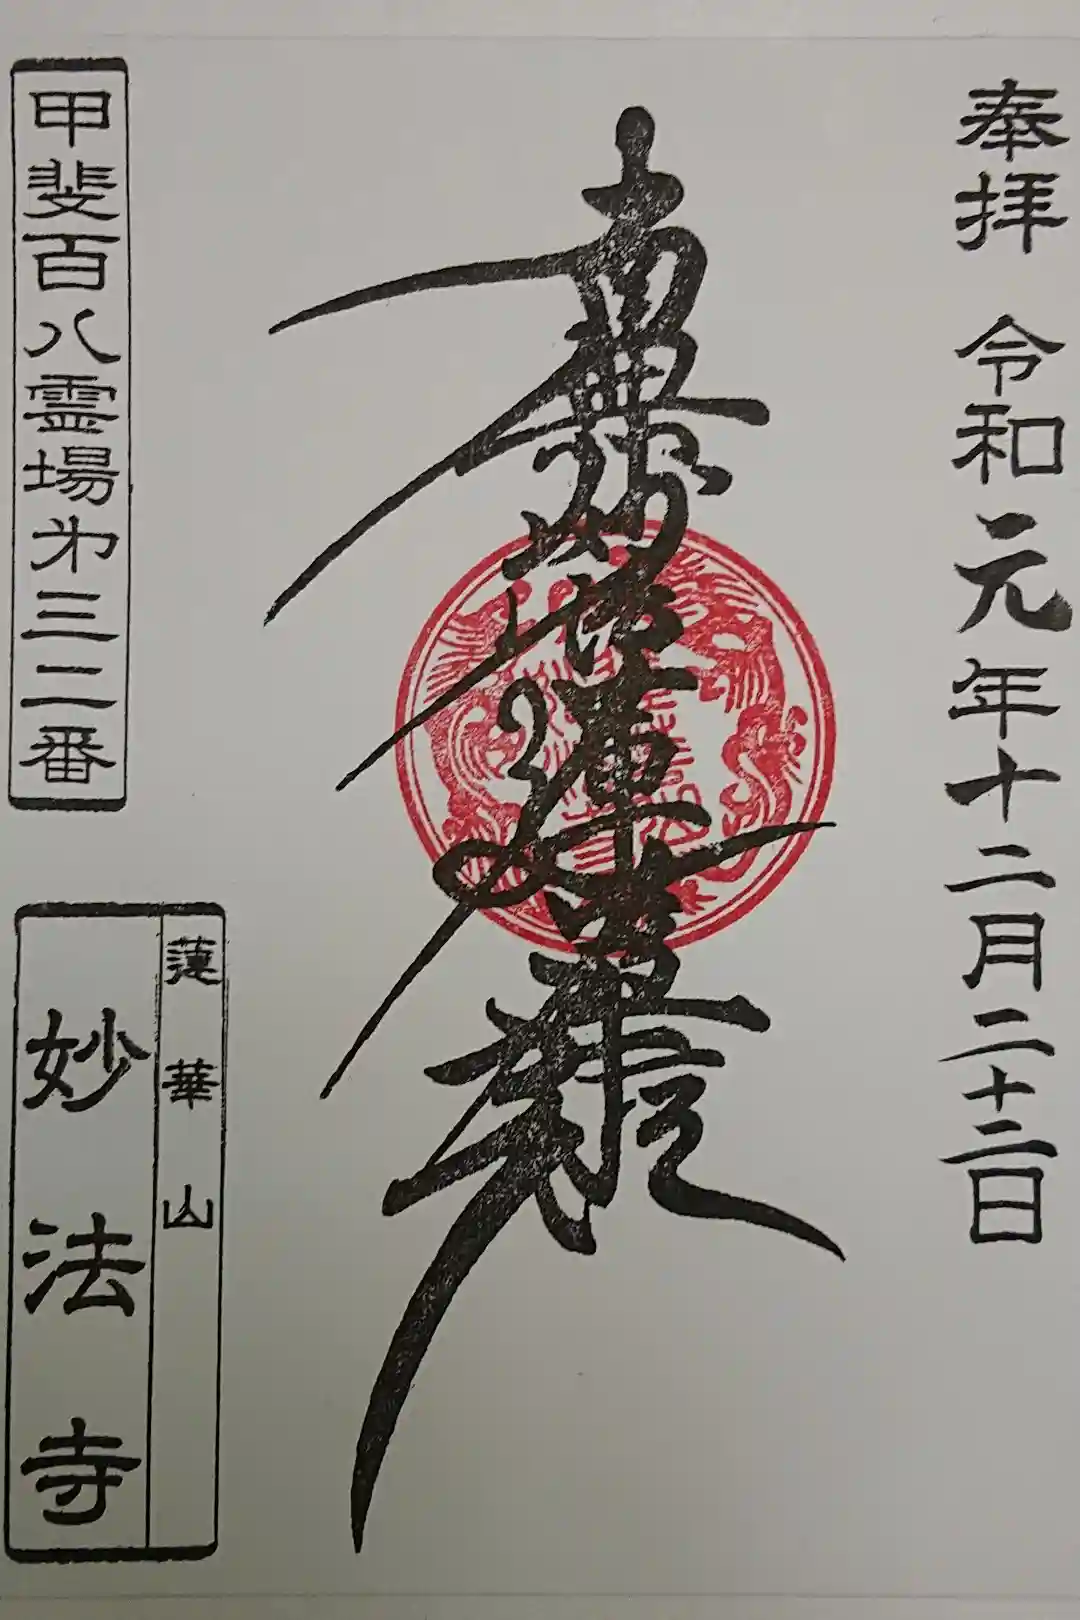 奉拝 令和元年十二月二十二日
南無妙法蓮華経
甲斐百八霊場㐧三二番
蓮華山
妙法寺